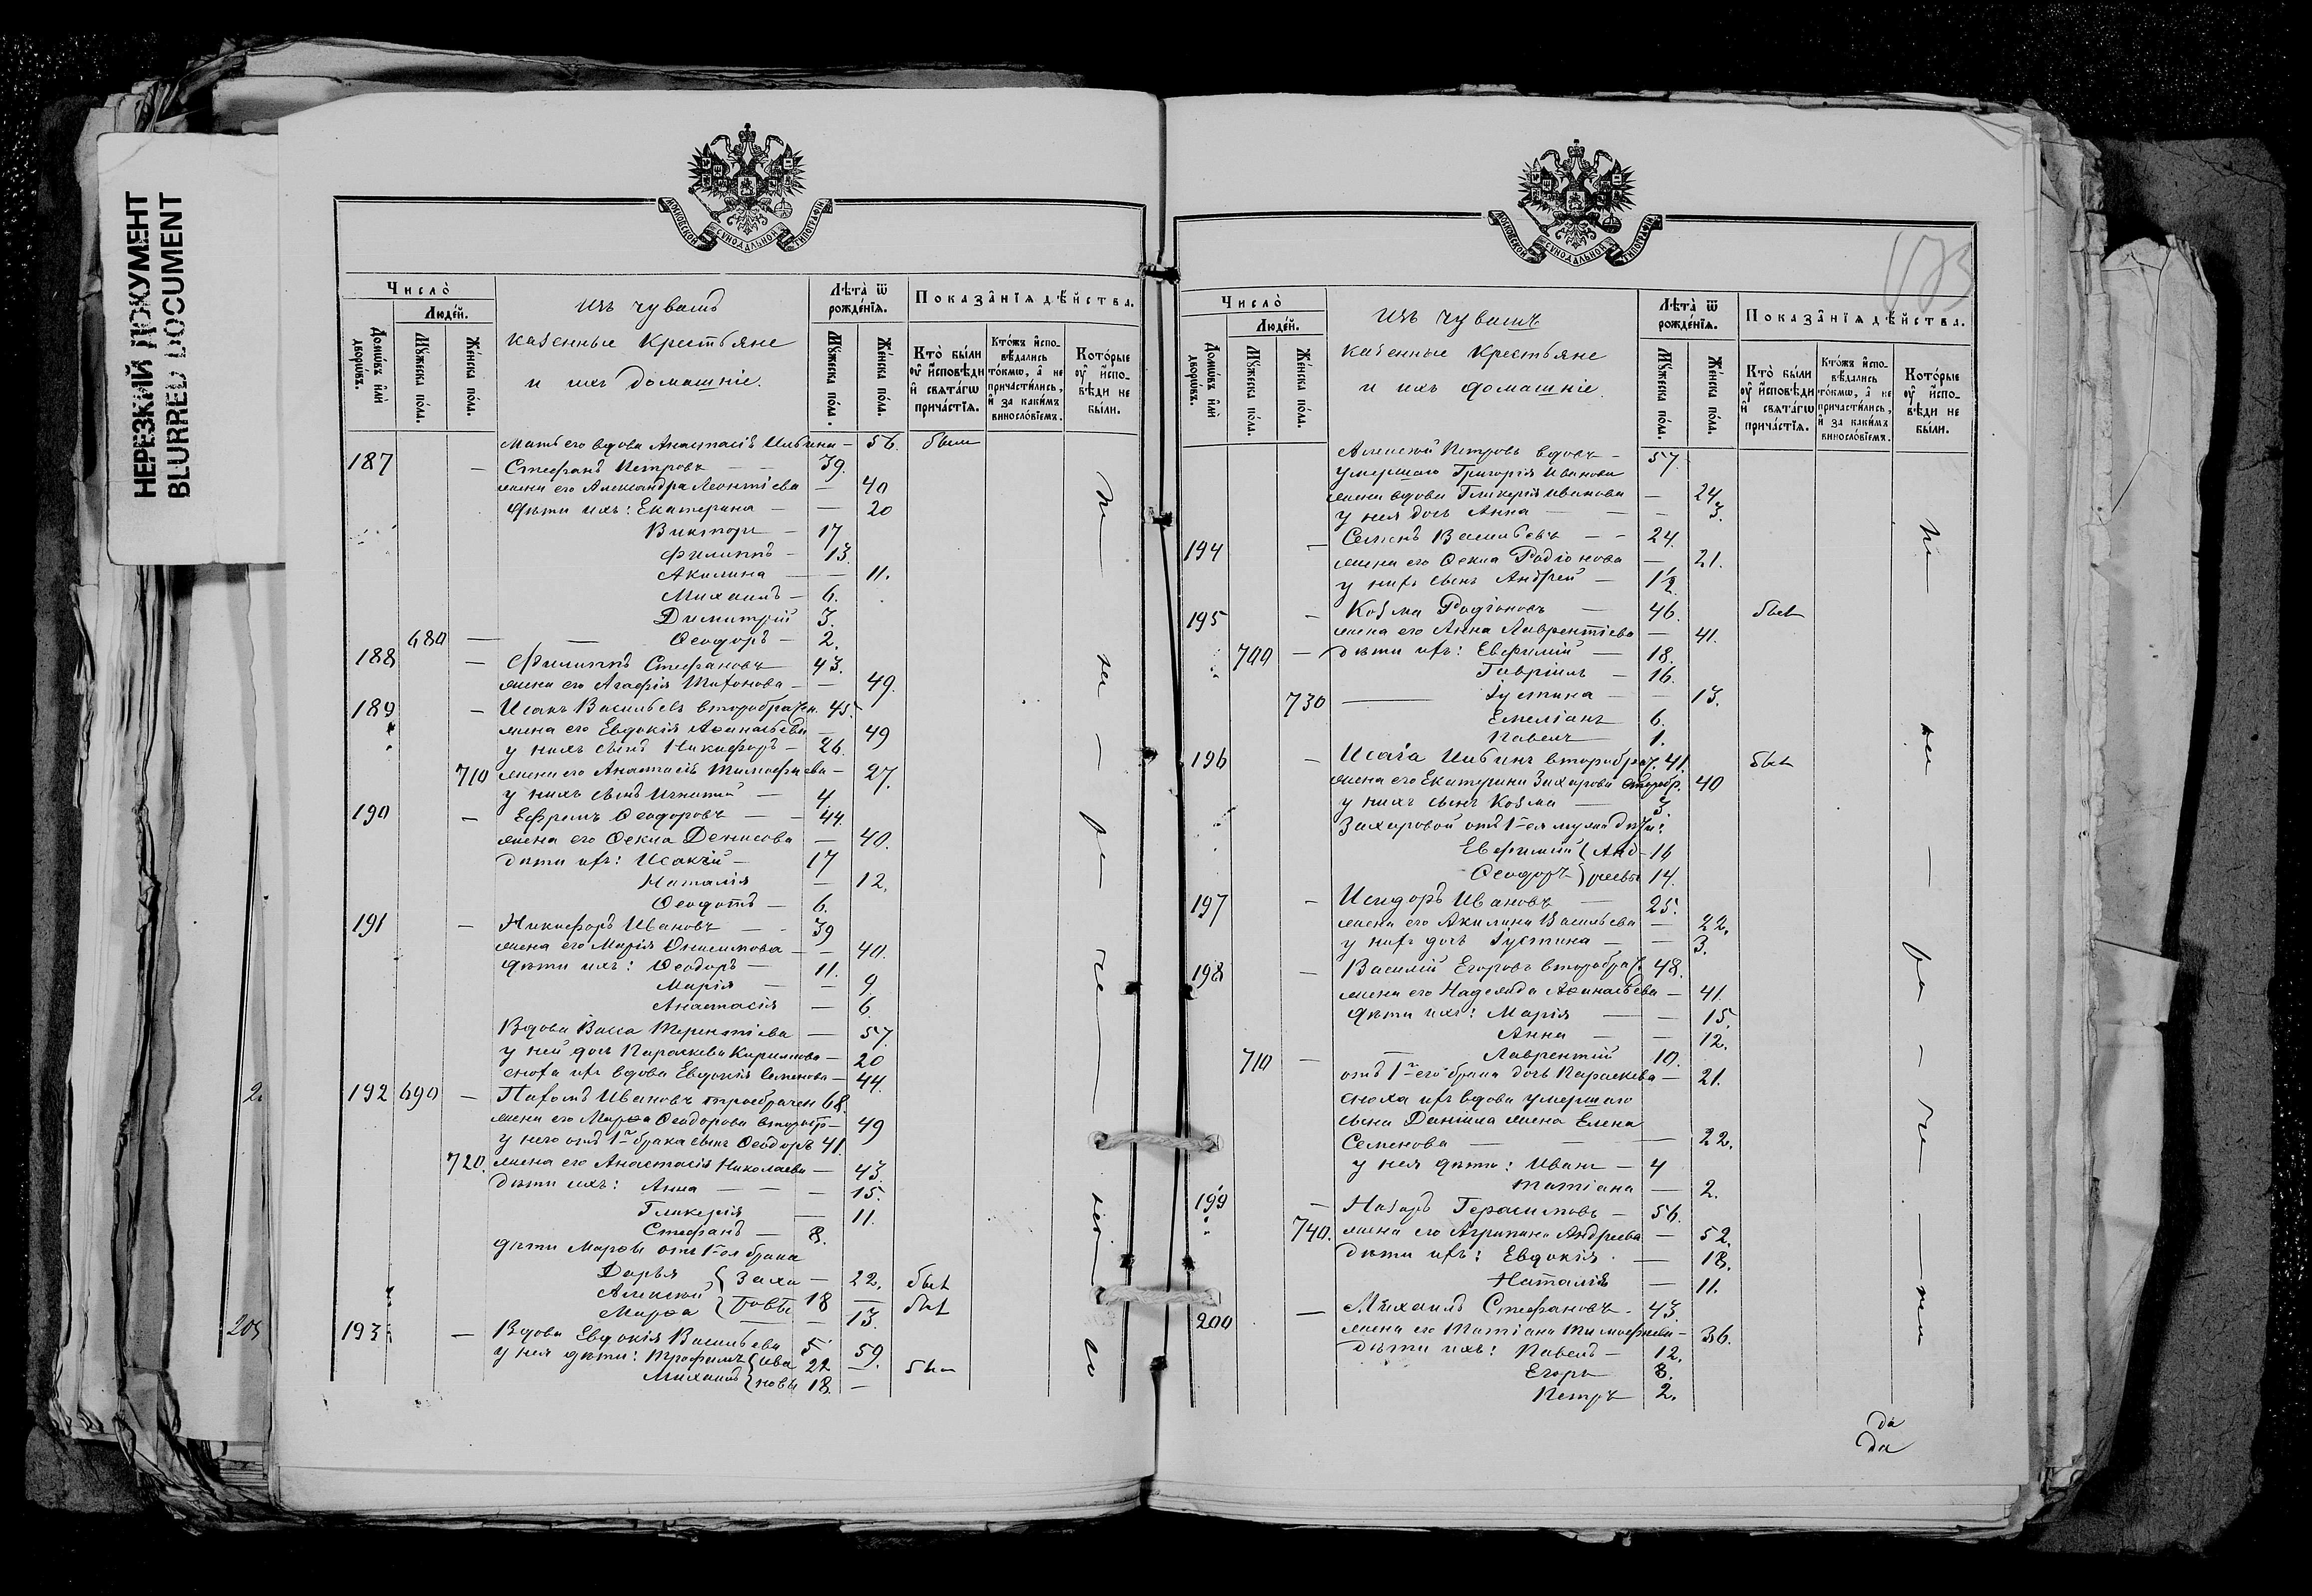 НЕРЕЗКИЙ ДОКУМЕНТ
BLURRED DOCUMENT
МОСКОВСКОЙ СѴНОДАЛЬНОЙ ТИПОГРАФІИ
Число̀
Людє́й.
Домѡ́въ и҆лѝ дворѡ́въ.
Мꙋ́жеска по́ла.
Же́нска по́ла.
Изъ чувашъ
казенные Крестьяне
и ихъ домашніе.
Лѣ́та ѿ рожде́нїѧ.
Мꙋ́жеска по́ла.
Же́нска по́ла.
Показа̑нїѧ дѣ́йства.
Кто̀ бы́ли ᲂу҆ и҆сповѣ́ди и҆ свѧта́гѡ прича́стїѧ.
Кто́жъ и҆спо-вѣ́дались то́кмѡ, а҆ не причасти́лись, и҆ за каки́мъ виносло́вїемъ.
Кото́рые ᲂу҆ и҆спо-вѣ́ди не бы́ли.
Мать его вдова Анастасія Ильина — 56. были
187 — Стефанъ Петровъ — 39.
жена его Александра Леонтіева — 40
дѣти ихъ: Екатерина — — 20
Викторъ — 17
Филиппъ — 13.
Акилина — — 11.
Михаилъ — 6.
Димитрій 3.
680 — — Ѳеодоръ — 2.
188 — Филиппъ Стефановъ 43.
жена его Агафія Тихонова — — 49.
189 — Исакъ Васильевъ второбрачн. 45.
жена его Евдокія Аѳанасьева — 49
у нихъ сынъ Никифоръ — 26.
710 жена его Анастасія Тимофѣева — 27.
у нихъ сынъ Игнатій — 4.
190 — Ефремъ Ѳеодоровъ — — 44.
жена его Ѳекла Денисова — 40.
дѣти ихъ: Исакій — 17
Наталія — 12.
Ѳеодотъ — 6.
191 — Никифоръ Ивановъ — 39
жена его Марія Онисимова — — 40.
дѣти ихъ: Ѳеодоръ — 11.
Марія — — 9
Анастасія — 6.
Вдова Васса Терентіева — 57.
у ней дочь Параскева Кирилова — 20
сноха ихъ вдова Евдокія Семенова — 44.
192 690 — Пахомъ Ивановъ троебрачен 68.
жена его Марѳа Ѳеодорова второбр — 49
у него отъ 1го брака сынъ Ѳеодоръ 41.
720. жена его Анастасія Николаева — 43.
дѣти ихъ: Анна — — — 15.
Гликерія — 11.
Стефанъ — 8.
дѣти Марѳы отъ 1го ея брака
Дарья { Заха — 22. был
Алексѣй } ровы 18 — был
Марѳа — 13.
193 — Вдова Евдокія Васильева 59.
у нея дѣти: Трофимъ { Ива 22 — был
Михаилъ } новы 18. —
2.
205
не — на — ра — че — но — и
Число̀
Людє́й.
Домѡ́въ и҆лѝ дворѡ́въ.
Мꙋ́жеска по́ла.
Же́нска по́ла.
Изъ чувашъ
казенные Крестьяне
и ихъ домашніе.
Лѣ́та ѿ рожде́нїѧ.
Мꙋ́жеска по́ла.
Же́нска по́ла.
Показа̑нїѧ дѣ́йства.
Кто̀ бы́ли ᲂу҆ и҆сповѣ́ди и҆ свѧта́гѡ прича́стїѧ.
Кто́жъ и҆спо-вѣ́дались то́кмѡ, а҆ не причасти́лись, и҆ за каки́мъ виносло́вїемъ.
Кото́рые ᲂу҆ и҆спо-вѣ́ди не бы́ли.
Алексѣй Петровъ вдовъ — 57.
умершаго Григорія Иванова
жена вдова Гликерія Иванова — 24.
у нея дочь Анна — — — 3.
194 — Семенъ Васильевъ — — 24.
жена его Ѳекла Родіонова — 21.
у нихъ сынъ Андрей — 1½
195 — Козма Родіоновъ — 46. был
жена его Анна Лаврентіева — 41.
700 — дѣти ихъ: Евфимій — 18.
Гавріилъ — 16.
730 — Іустина — — 13.
Емеліанъ 6.
Павелъ 1.
196 — Исаія Ильинъ второбрач. 41 был
жена его Екатерина Захарова второбр. 40
у нихъ сынъ Козма — 3.
Захаровой отъ 1го ея мужа дѣти:
Евфимій { Анд — 16
Ѳеодоръ } реевы 14.
197 — Исидоръ Ивановъ — 25.
жена его Акилина Васильева — 22.
у нихъ дочь Іустина — — 3.
198 — Василій Егоровъ второбрач. 48.
жена его Надежда Аѳанасьева — 41.
дѣти ихъ: Марія — — 15.
Анна — — 12.
710 — — Лаврентій 10.
отъ 1го его брака дочь Параскева — 21.
сноха ихъ вдова умершаго
сына Даніила жена Елена
Семенова — — — 22.
у нея дѣти: Иванъ — 4
Татіана — 2.
199 — Назаръ Герасимовъ — 56.
740. жена его Агрипина Андреева — 52.
дѣти ихъ: Евдокія — 18.
Наталія — 11.
200 — Михаилъ Стефановъ — 43.
жена его Татіана Тимофѣева — 36.
дѣти ихъ: Павелъ — 12.
Егоръ 8.
Петръ 2.
да
да